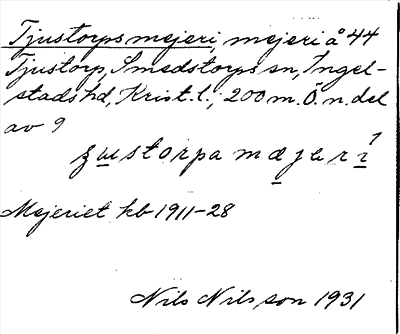 Tjustorps mejeri, mejeri å 44
Tjustorp, Smedstorps sn, Ingel-
stads hd, Krist. l.; 200 m. Ö. n. del
av 9
ʒustorpa mæjeri
Mejeriet kb 1911-28
Nils Nilsson 1931